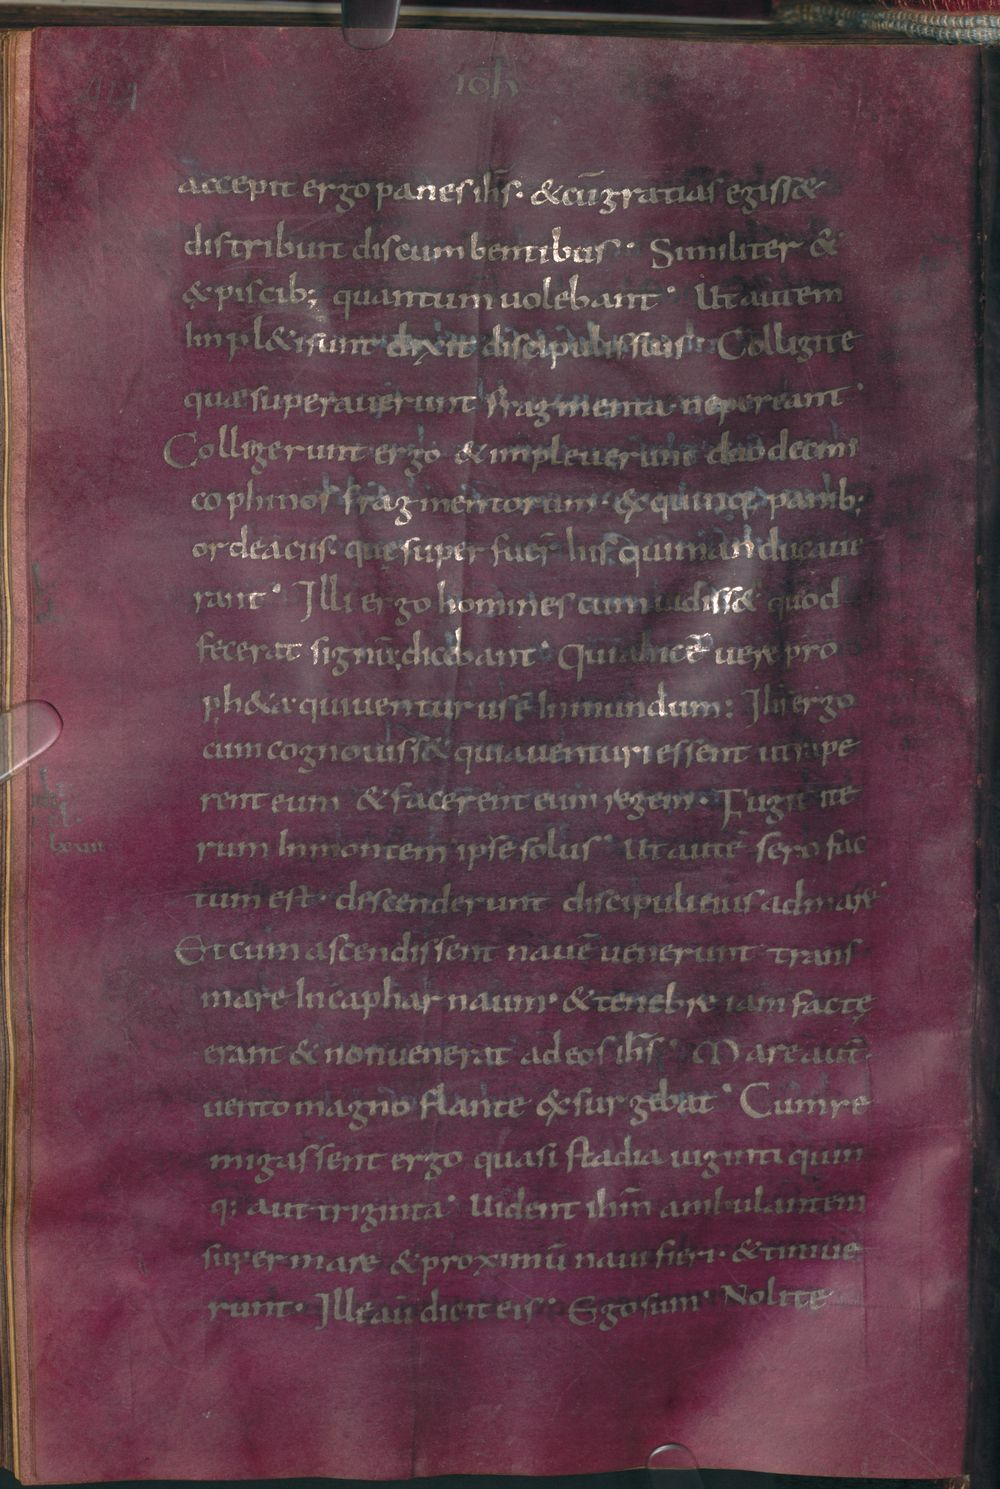 ioh
accepit ergo panes ih̅s· & cu̅ gratias egiss&
distribuit discumbentibus· Similiter &
& piscib; quantum uolebant· Ut autem
Impl&i sunt dixit discipulis suis· Colligite
quæ superauerunt fragmenta· ne pereant·
Colligerunt ergo & impleuerunt duodecim
cophinos fragmentorum· & quinq; panib;
ordeacus· quę super fuer̅ his qui manducaue
rant· Illi ergo homines cum uidiss& quod
fecerat signu̅ dicebant· Quia hic e̅ uere pro
ph&a qui uenturus e̅ In mundum: Ih̅s ergo
cum cognouiss& quia uenturi essent ut rape
rent eum & facerent eum regem· Fugit ite
rum In montem ipse solus· Ut aute̅ sero fac
tum est· descenderunt discipuli eius ad mare·
Et cum ascendissent naue̅ uenerunt trans
mare In capharnaum· & tenebre iam factę
erant & non uenerat ad eos ih̅s· Mare aut̅·
uento magno flante exsurgebat· Cum re
migassent ergo quasi stadia uiginti quin
q; aut triginta· Uident ih̅m ambulantem
super mare & proximu̅ naui fieri· & timue
runt· Ille au̅ dicit eis· Ego sum· Nolite
lxuii